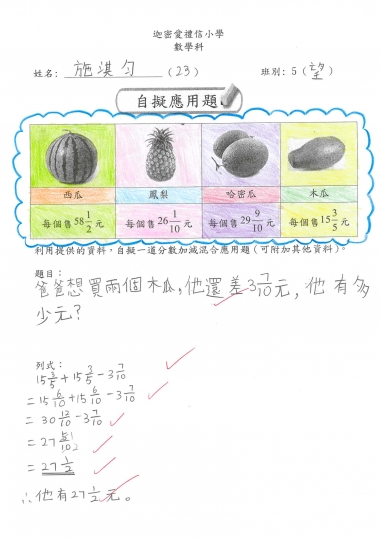 迦密愛禮信小學
數學科
姓名: 施淇勻 (23) 班別: 5 (望)
自擬應用題
西瓜 鳳梨 哈密瓜 木瓜
每個售 58 1/2 元 每個售 26 1/10 元 每個售 29 9/10 元 每個售 15 3/5 元
利用提供的資料,自擬一道分數加減混合應用題(可附加其他資料)。
題目:
爸爸想買兩個木瓜,他還差3 7/10元,他有多
少元?
列式:
15 3/5 + 15 3/5 - 3 7/10
= 15 6/10 + 15 6/10 - 3 7/10
= 30 12/10 - 3 7/10
= 27 5/10
= 27 1/2
∴他有27 1/2元。